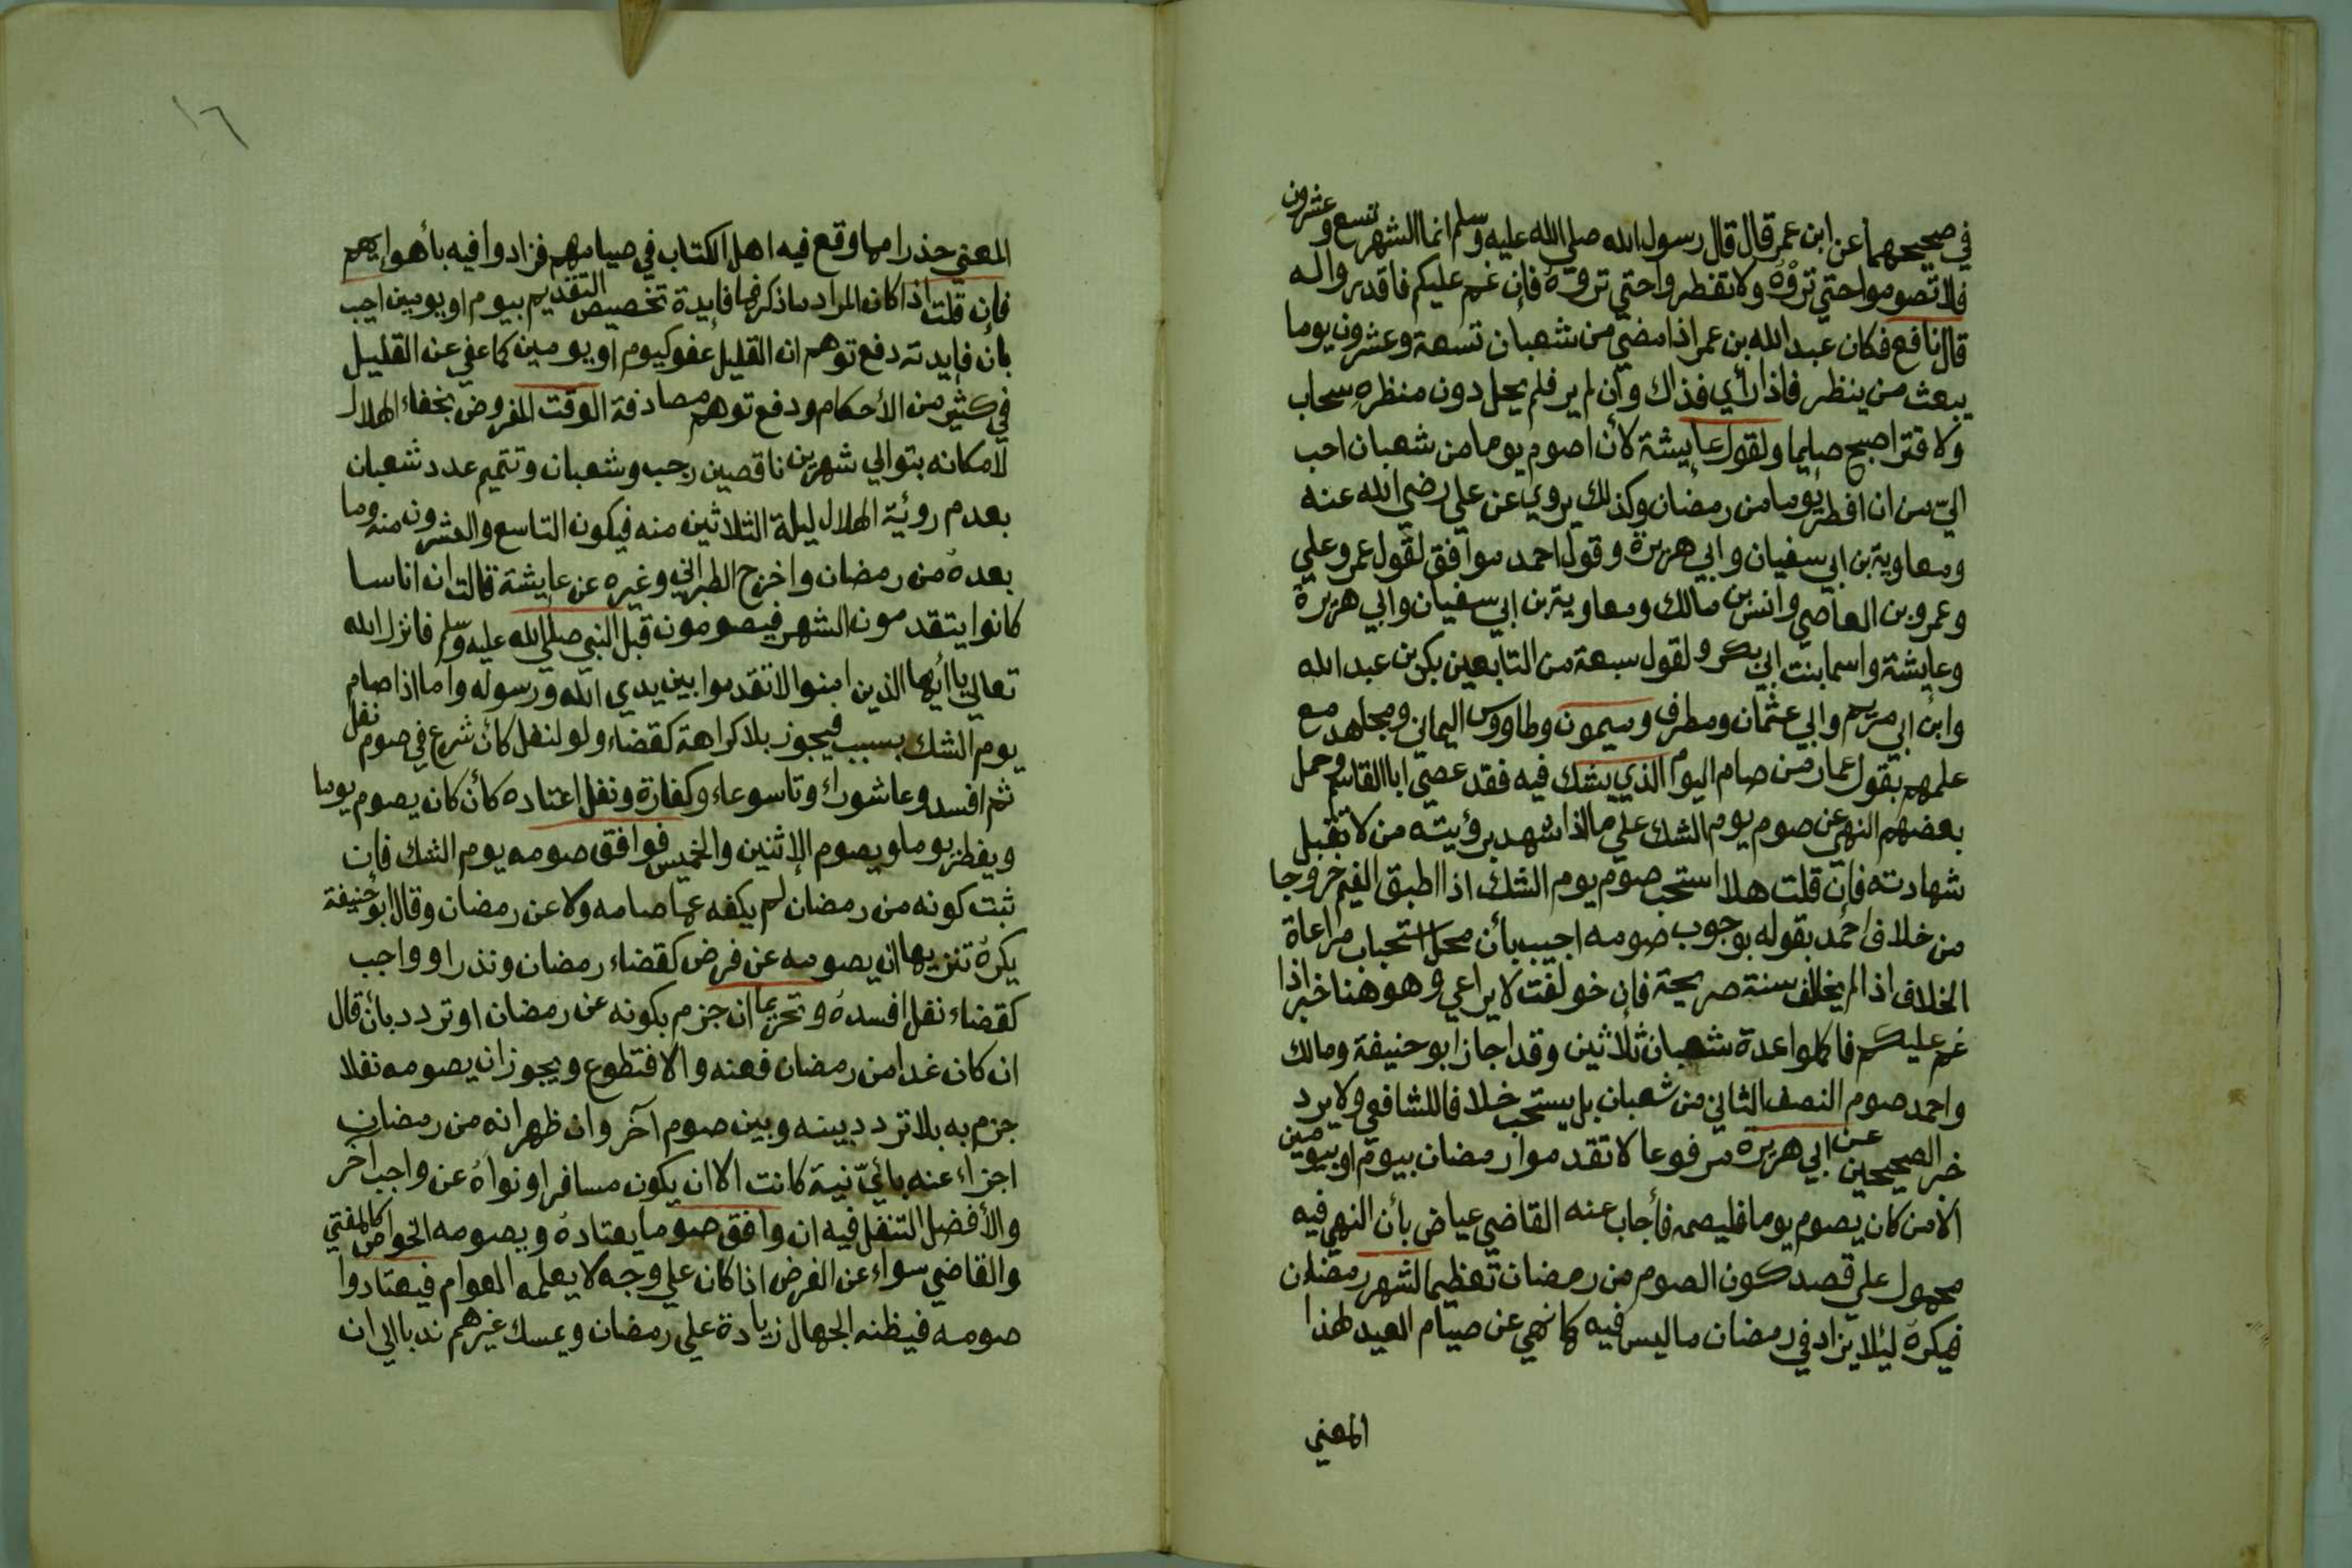 في صحيحهما عن ابن عمر قال قال رسول الله صلي الله عليه وسلم انما الشهر تسع وعشرون
فلا تصوموا حتي تروْه ولا تفطروا حتي تروه فإن غم عليكم فاقدروا له
قال نافع فكان عبد الله بن عمر اذا مضي من شعبان تسعة وعشرون يوما
يبعث من ينظر فاذا رأي فذاك وان لم ير فلم يحل دون منظره سحاب
ولا قتر اصبح صايما ولقول عايشة لأن اصوم يوما من شعبان احب
اليّ من ان افطر يوما من رمضان وكذلك يروي عن علي رضي الله عنه
ومعاوية بن ابي سفيان وابي هريرة وقول احمد موافق لقول عمر وعلي
وعمرو بن العاصي وانس بن مالك ومعاوية بن ابي سفيان وابي هريرة
وعايشة واسما بنت ابي بكر ولقول سبعة من التابعين بكر بن عبد الله
وابن ابي مريم وابي عثمان ومطرف وميمون وطاووس اليماني ومجاهد مع
علمهم بقول عمار من صام اليوم الذي يشك فيه فقد عصي ابا القاسم وحمل
بعضهم النهي عن صوم يوم الشك علي ما اذا شهد برؤيته من لا تقبل
شهادته فإن قلت هلا استحب صوم يوم الشك اذا اطبق الغيم خروجا
من خلاف احمد بقوله بوجوب صومه اجيب بأن محل استحباب مراعاة
الخلاف اذا لم يخالف سنة صريحة فإن خولفت لا يراعي وهو هنا خبر اذا
غم عليكم فاكملوا عدة شعبان ثلاثين وقد اجاز ابو حنيفة ومالك
واحمد صوم النصف الثاني من شعبان بل يستحب خلافا للشافعي ولا يرد
خبر الصحيحين عن ابي هريرة مرفوعا لا تقدموا رمضان بيوم او بيومين
الا من كان يصوم يوما فليصمه فأجاب عنه القاضي عياض بأن النهي فيه
محمول علي قصد كون الصوم من رمضان تعظيما لشهر رمضان
فيكره ليلا يزاد في رمضان ما ليس فيه كما نهي عن صيام العيد لهذا
المعني
١٦
المعني حذرا مما وقع فيه اهل الكتاب في صيامهم فزادوا فيه بأهوايهم
فإن قلت اذا كان المراد ما ذكر فما فايدة تخصيص التقديم بيوم او يومين اجيب
بان فايدته دفع توهم ان القليل عفو كيوم او يومين كما عفي عن القليل
في كثير من الأحكام ودفع توهم مصادفة الوقت المفروض بخفاء الهلال
لامكانه بتوالي شهرين ناقصين رجب وشعبان وتتميم عدد شعبان
بعدم روئية الهلال ليلة الثلاثين منه فيكون التاسع والعشرون منه وما
بعده من رمضان واخرج الطبراني وغيره عن عايشة قالت ان اناسا
كانوا يتقدمون الشهر فيصومون قبل النبي صلي الله عليه وسلم فانزل الله
تعالي يا أيها الذين امنوا لا تقدموا بين يدي الله ورسوله واما اذا صام
يوم الشك بسبب فيجوز بلا كراهة كقضاء ولو لنفل كأن شرع في صوم نفل
ثم افسده وعاشوراء وتاسوعاء وكفارة ونفل اعتاده كأن كان يصوم يوما
ويفطر يوما ويصوم الاثنين والخميس فوافق صومه يوم الشك فإن
ثبت كونه من رمضان لم يكفه عما صامه ولا عن رمضان وقال ابو حنيفة
يكره تنزيها ان يصومه عن فرض كقضاء رمضان ونذر او واجب
كقضاء نفل افسده وتحريما ان جزم بكونه عن رمضان او تردد بأن قال
ان كان غدا من رمضان فعنه والا فتطوع ويجوز ان يصومه نفلا
جزم به بلا تردد بينه وبين صوم آخر وان ظهر انه من رمضان
اجزاء عنه بأيّ نية كانت الا ان يكون مسافرا ونواه عن واجب آخر
والأفضل التنفل فيه ان وافق صوما يعتاده ويصومه الخواص كالمفتي
والقاضي سواء عن الفرض اذا كان علي وجه لا يعلمه العوام فيعتادوا
صومه فيظنه الجهال زيادة علي رمضان ويمسك غيرهم ندبا الي ان